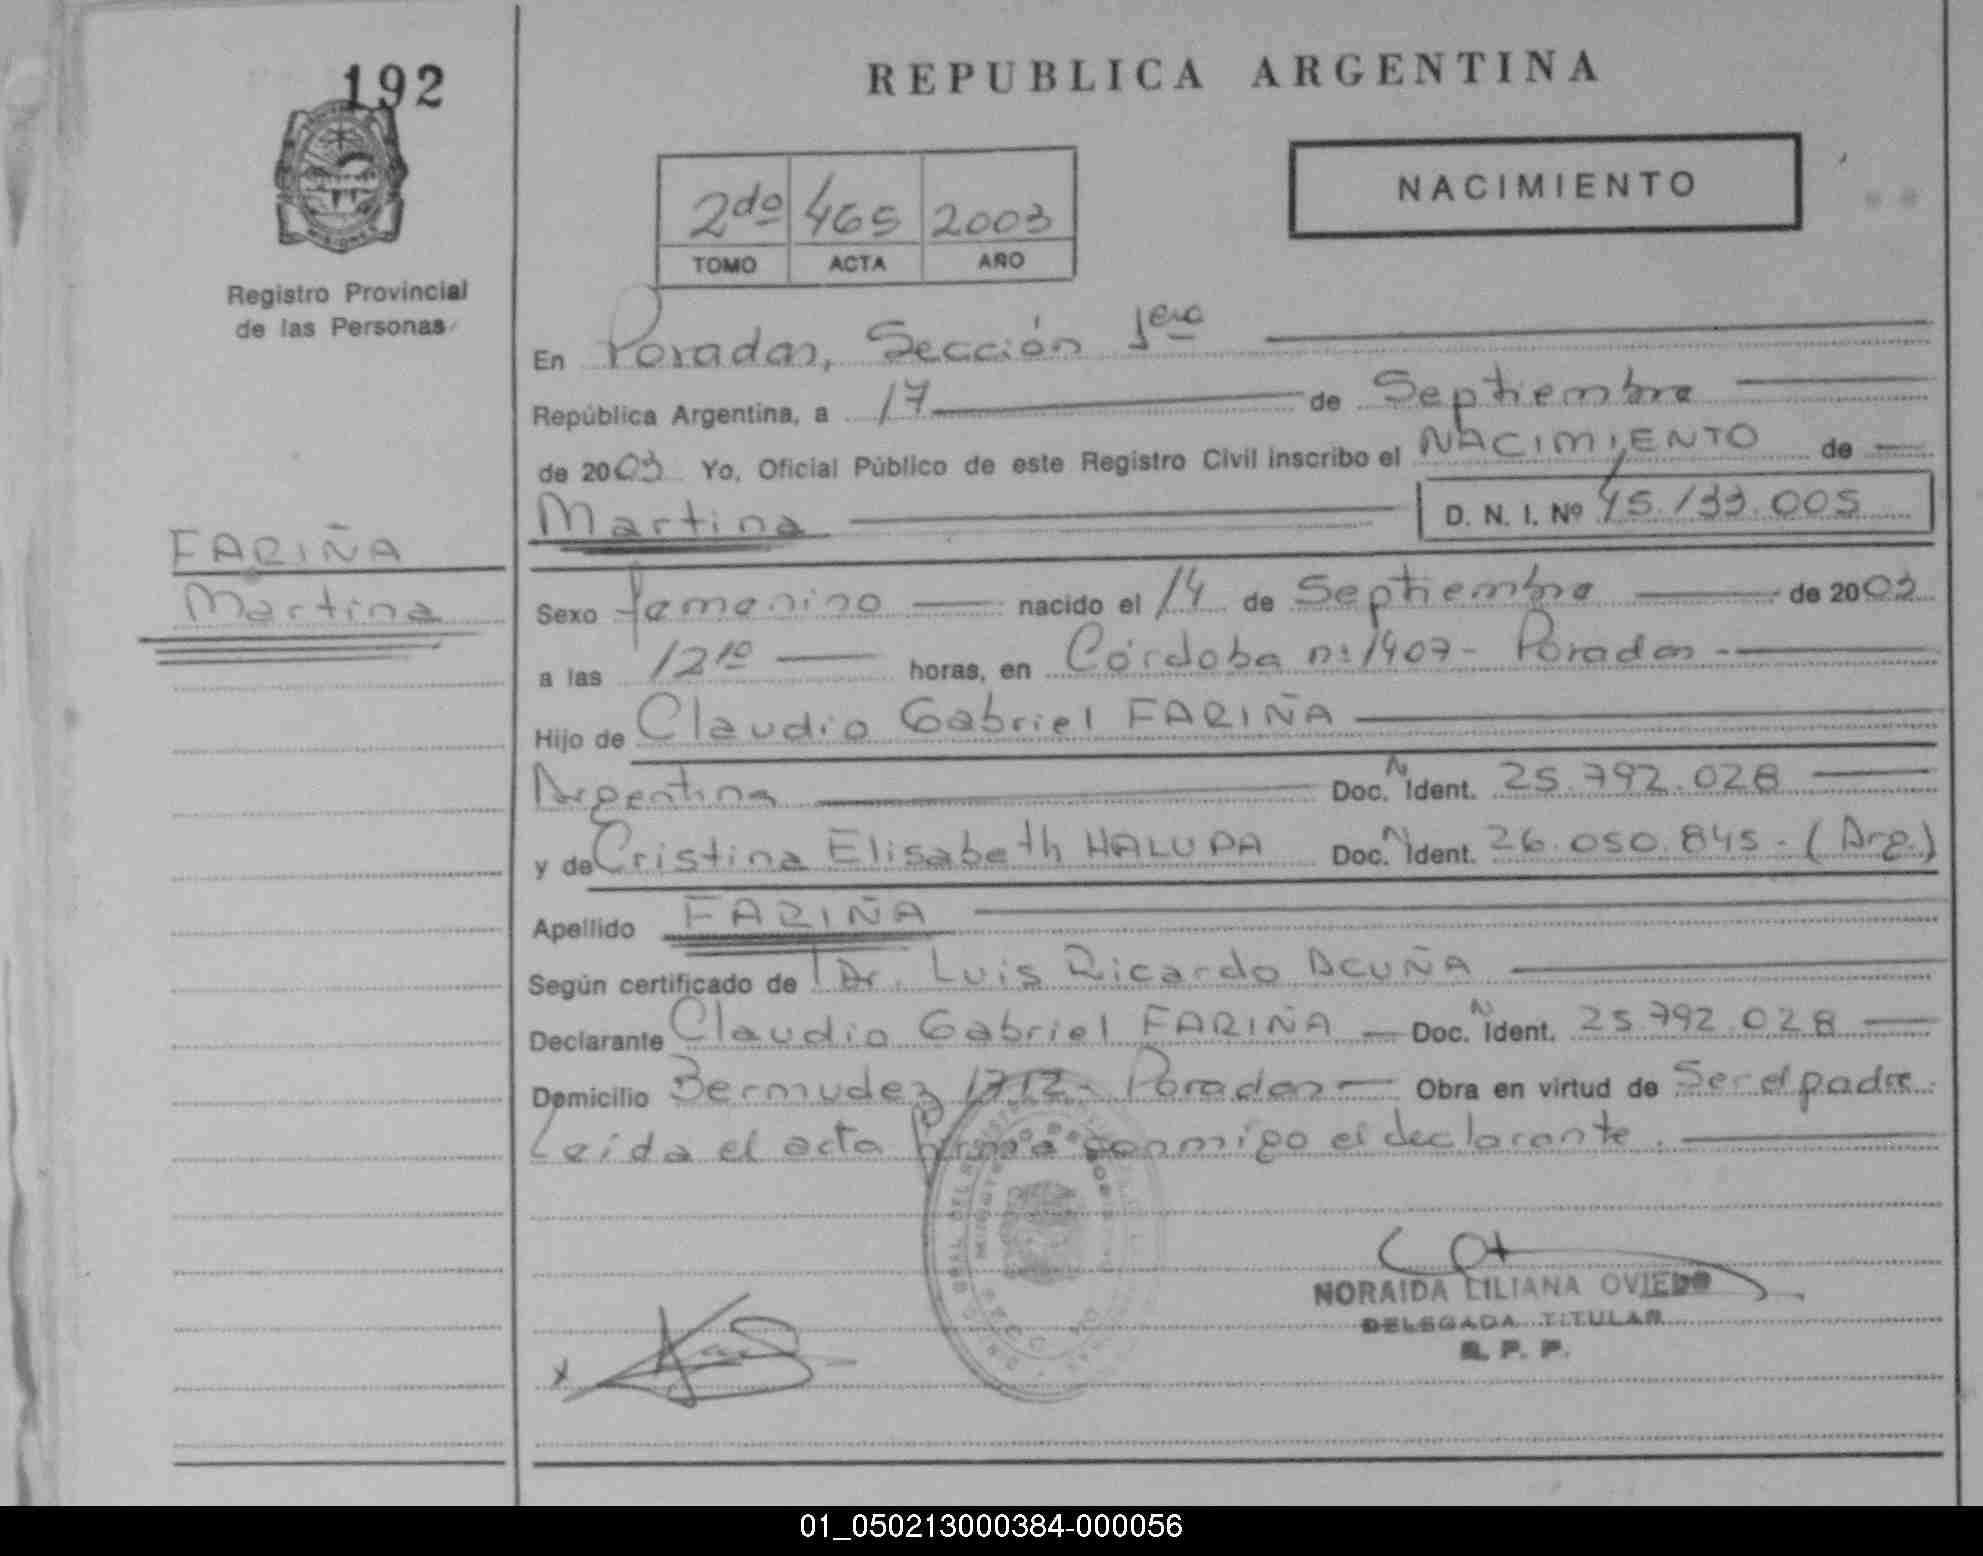 192
MISIONES
Registro Provincial
de las Personas
REPUBLICA ARGENTINA
NACIMIENTO
2do 465 2003
TOMO ACTA AÑO
En Posadas, Sección 1era
República Argentina, a 17 de Septiembre
de 2003 Yo, Oficial Público de este Registro Civil inscribo el NACIMIENTO de
Martina D. N. I. Nº 45.133.005
FARIÑA
Martina
Sexo femenino nacido el 14 de Septiembre de 2003
a las 12 10 horas, en Córdoba nº 1407 - Posadas -
Hijo de Claudio Gabriel FARIÑA
Argentina Doc. N Ident. 25.792.028
y de Cristina Elisabeth HALUPA Doc. N Ident. 26.050.845 - (Arg.)
Apellido FARIÑA
Según certificado de Dr. Luis Ricardo ACUÑA
Declarante Claudio Gabriel FARIÑA Doc. N Ident. 25.792.028
Domicilio Bermudez 1712 - Posadas Obra en virtud de Ser el padre.
Leída el acta firma conmigo el declarante.
NORAIDA LILIANA OVIEDO
DELEGADA TITULAR
R. P. P.
01_050213000384-000056